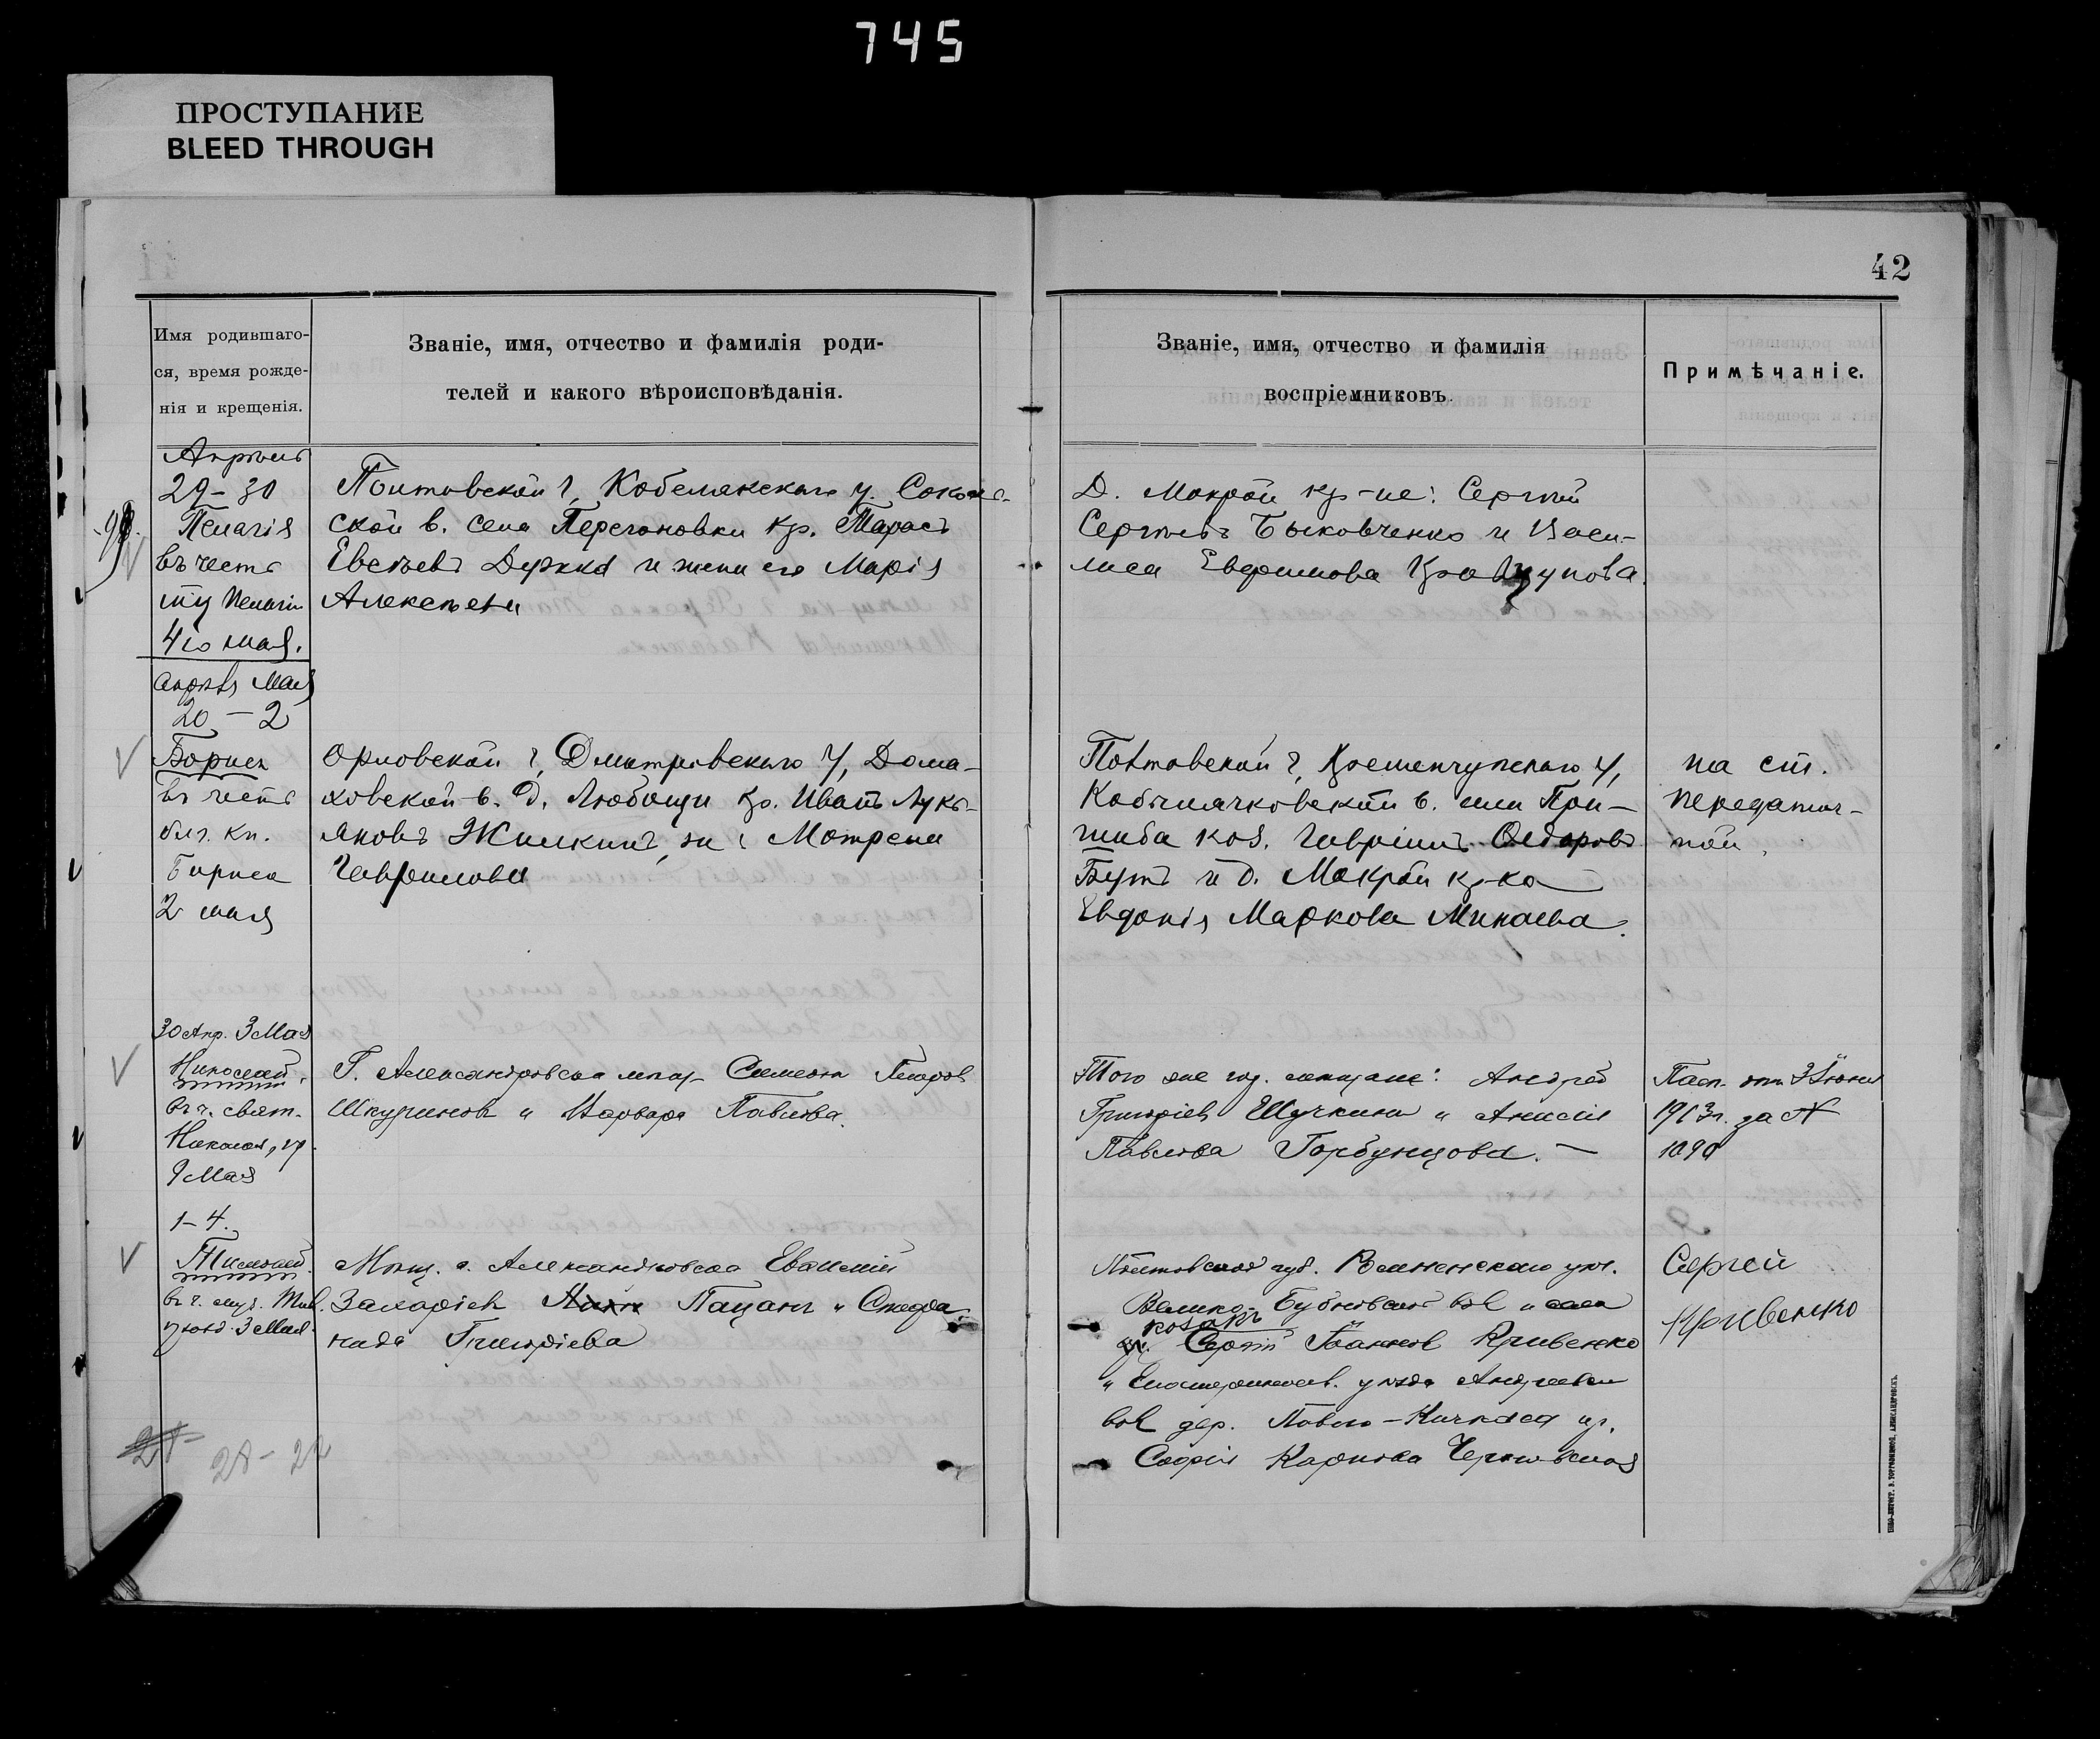 745
ПРОСТУПАНИЕ
BLEED THROUGH
42
Имя родившаго-
ся, время рожде-
нія и крещенія.
Званіе, имя, отчество и фамилія роди-
телей и какого вѣроисповѣданія.
Званіе, имя, отчество и фамилія
воспріемниковъ.
Примѣчаніе.
Апрѣль
29-30
Пелагія
въ честь
Пелагіи
4го мая.
Полтавской г, Кобелякскаго у.
ской в. села Перегоновки кр. Тарасъ
Евсѣевъ и жена его Марія
Алексѣева
Д. Мокрой кр-не: Сергѣй
Сергѣевъ Быковченко и Васи-
лиса Евфимова
апрѣль Май
20-2
Борисъ
въ честь
блг. кн.
Бориса
2 мая
Орловской г, Дмитровскаго У, Дома-
ховской в. д. Любощи кр. Иванъ Лукь-
яновъ Жилкинъ, Матрена
Гаврилова
Полтавской г, Кременчугскаго у,
Кобелячковской в. села При-
шиба коз. Гавріилъ Ѳедоровъ
Бутъ и д. Мокрой кр-ка
Евдокія Маркова Минаева.
на ст.
передаточ-
ной.
30 Апр. 3 Мая
Николай.
въ ч. свят.
Николая,
9 Мая
Г. Александровска мѣщ. Симеонъ
и Варвара Павлова.
Того же гор. мѣщане: Андрей
Григоріевъ Щучкинъ и
Павлова Горбунцова. -
Пасп. отъ 3 Іюня
1913г. за N
1090
1-4.
Тимофей.
въ ч. муч. Тим.
3 Мая.
Мѣщ. г. Александровска Евѳимій
Захаріевъ Пацанъ и Степа
нида Григоріева
Полтавской губ. Роменскаго уѣз.
Велико-Бубновской вол. и села
козакъ
Сергій Іоанновъ Кривенко
и Екатеринослав. уѣзда
вол. дер. Павло-Кичкаса кр.
Софія Карпова
Сергей
Кривенко
28-22